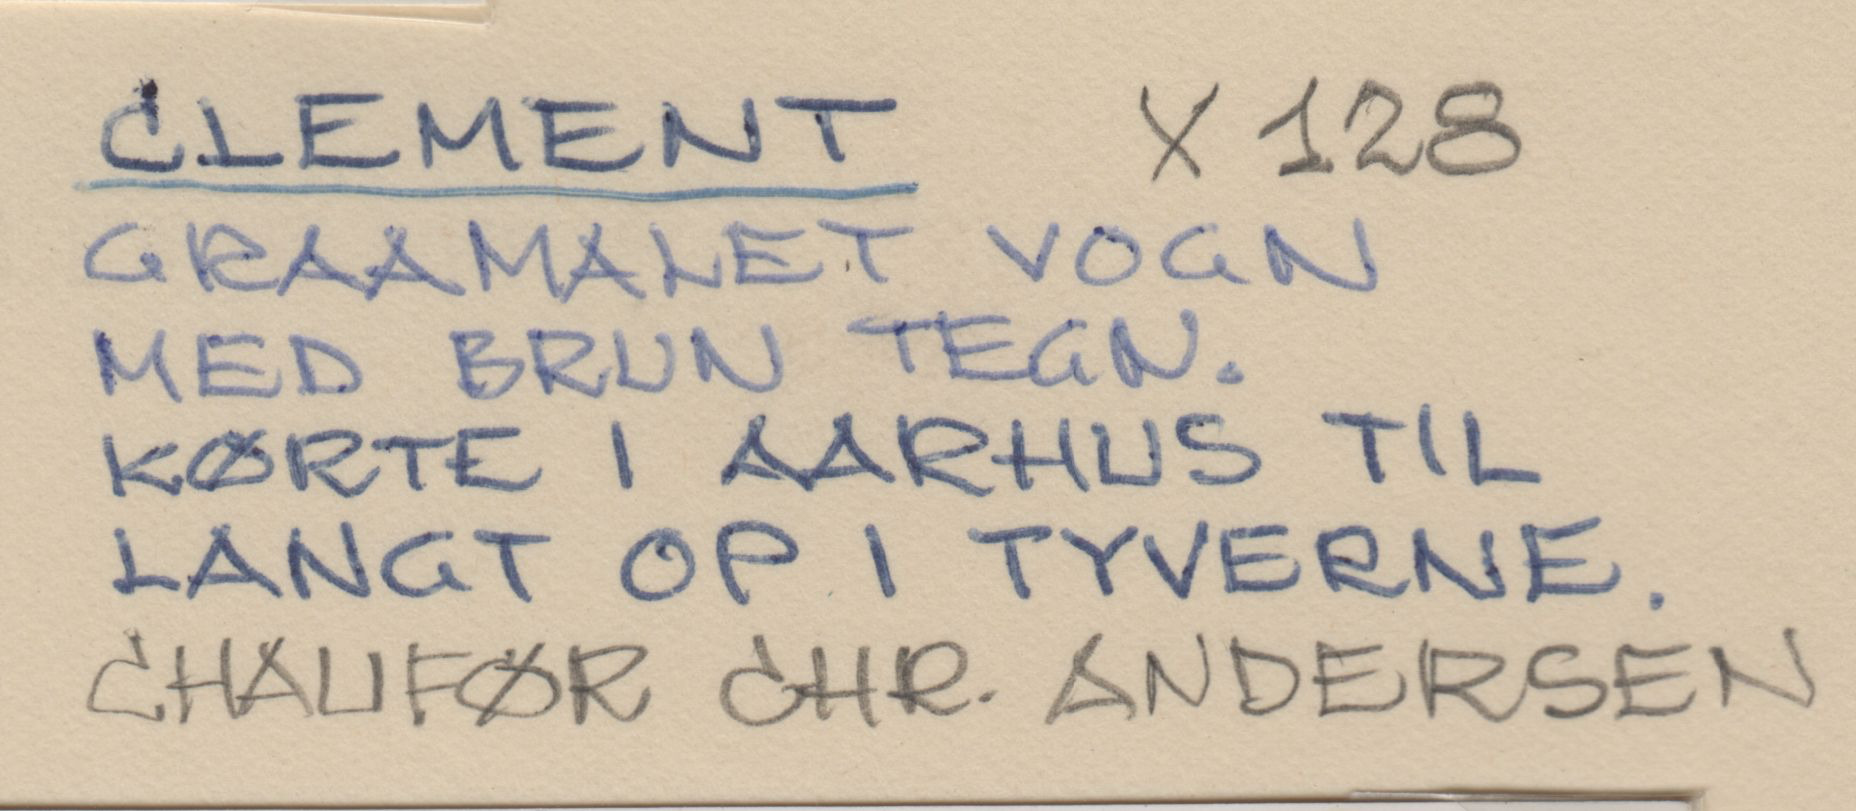 CLEMENT X 128
GRAAMALET VOGN
MED BRUN TEGN.
KØRTE I AARHUS TIL
LANGT OP I TYVERNE.
CHAUFØR CHR. ANDERSEN